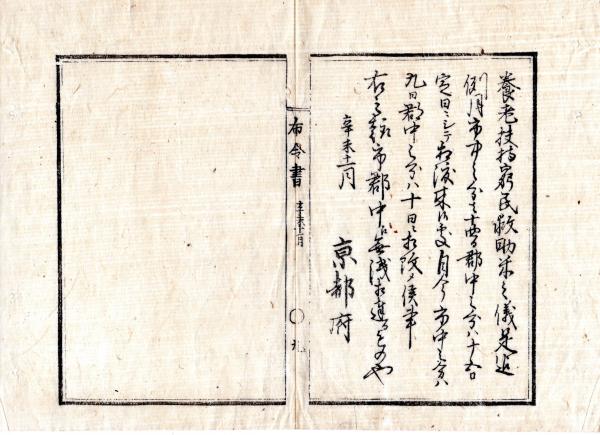 養老扶持窮民救助米之儀是迠
例月市中之分十四日郡中之分ハ十五日
定日ニシテ相渡来候處自今市中之分ハ
九日郡中之分ハ十日ニ相改メ候事
右之趣市郡中ニ無洩相達るもの也
辛未十一月
京都府
布令書
辛未十一月
〇九